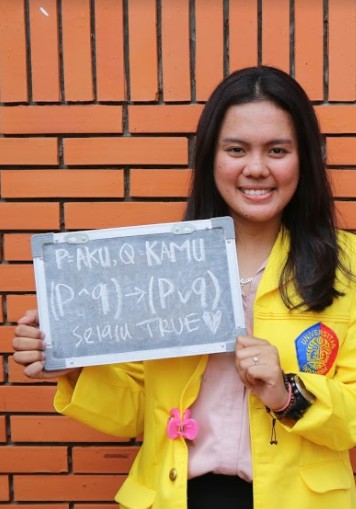 P=AKU, Q KAMU
(P^q)→(Pvq)
selalu TRUE♡
UNIVERSITAS